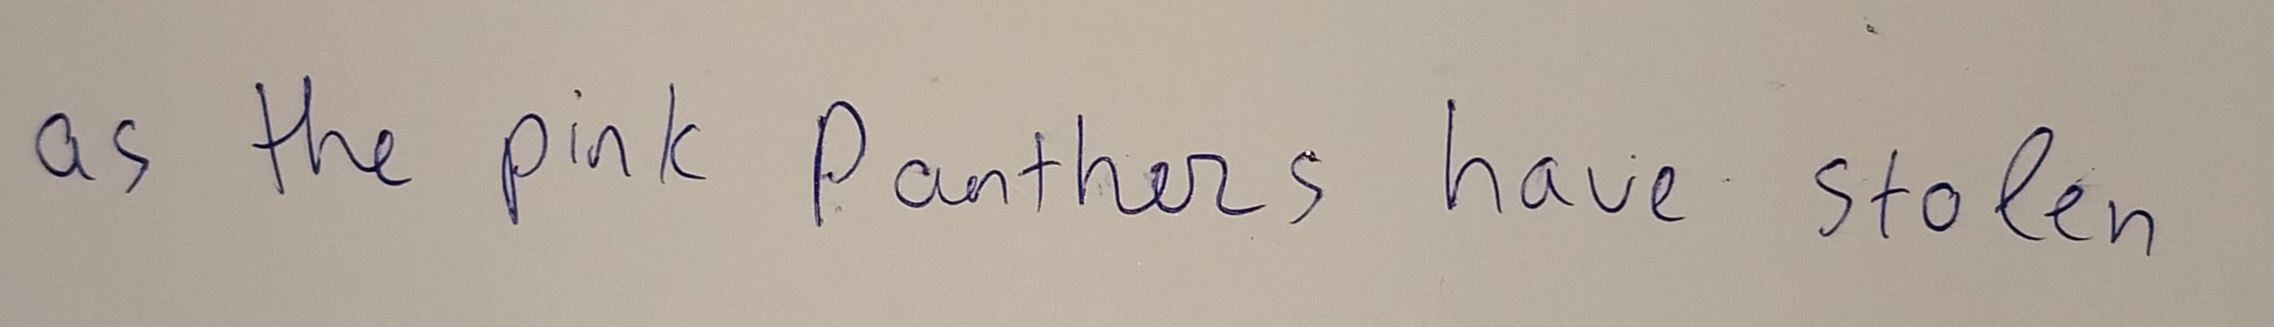 as the pink Panthers have stolen